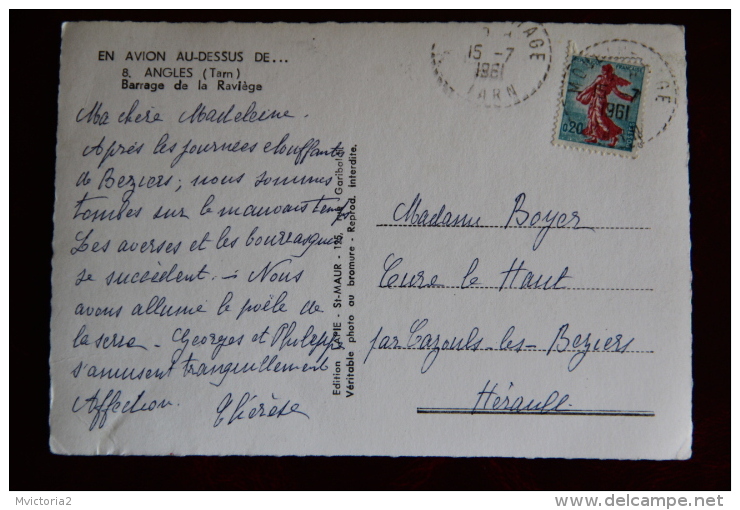 EN AVION AU-DESSUS DE...
8. ANGLES (Tarn)
Barrage de la Raviège
Ma chère Madeleine.
Après les journées étouffantes
de Beziers; nous sommes
tombés sur le mauvais temps
Les averses et les bourrasques
se succèdent. — Nous
avons allumé le poêle de
la serre - Georges et Philippe
s'amusent tranquillement
Affection. Thérèse
Edition - St-MAUR -
Véritable photo au bromure - Reprod. Interdite.
15 -7
1961
TARN
0,20
1961
Madame Boyer
Cure le Haut
par Cazouls-les-Beziers
Hérault
Mvictoria2
delcampe.net